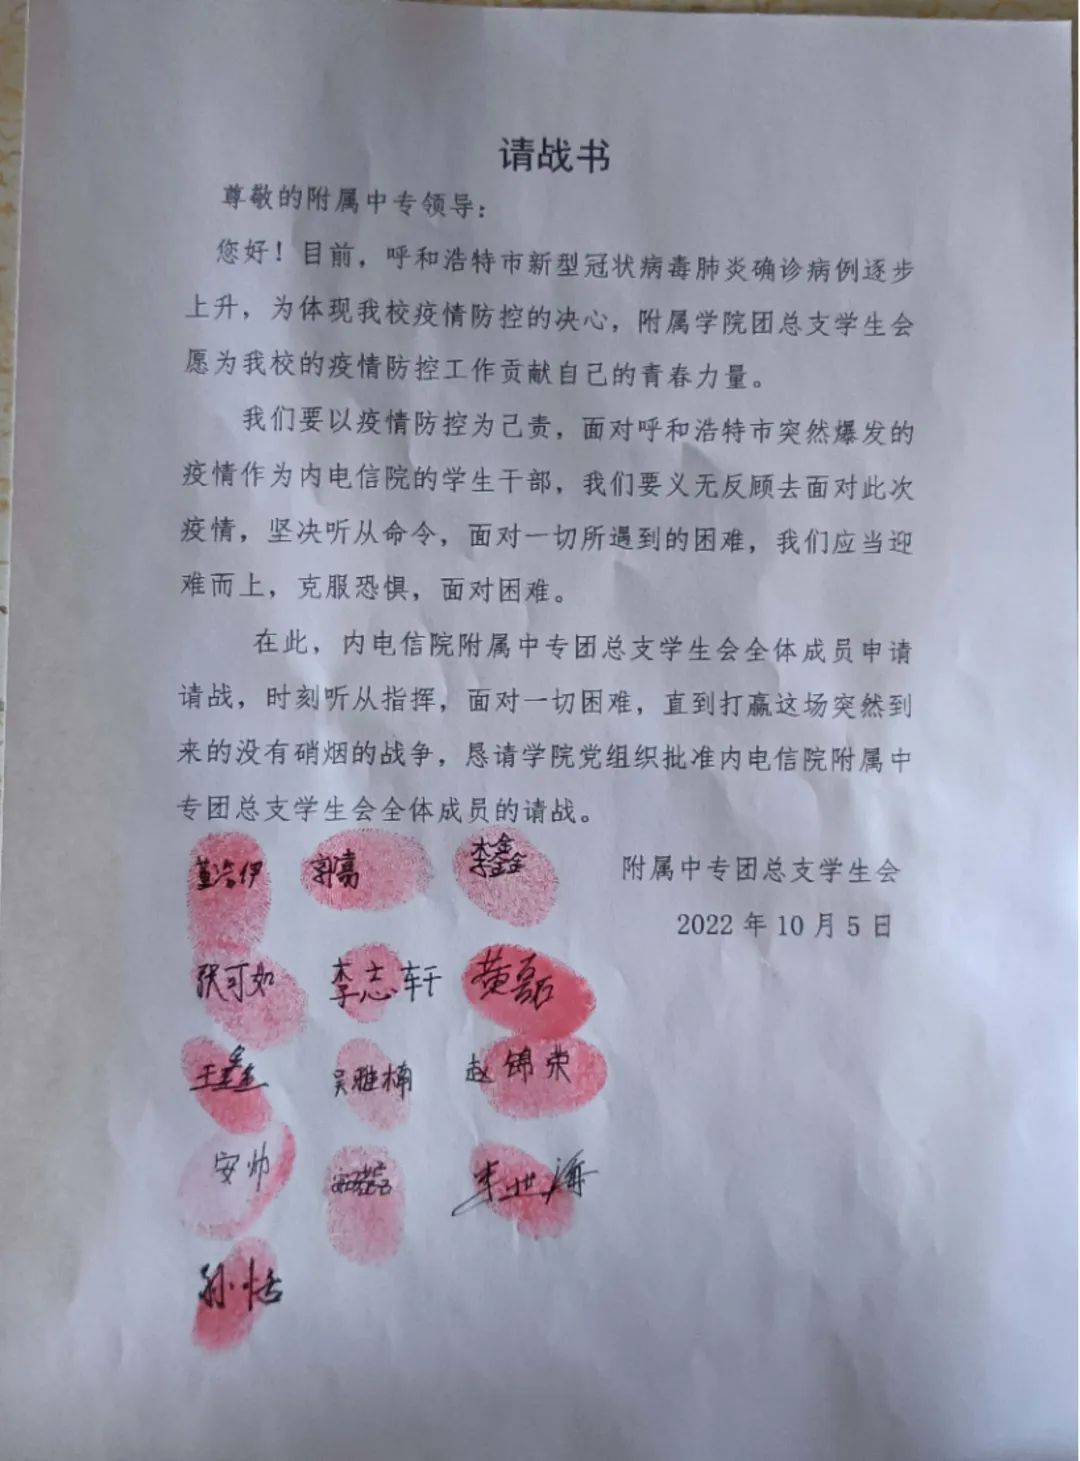 请战书
尊敬的附属中专领导：
您好！目前，呼和浩特市新型冠状病毒肺炎确诊病例逐步
上升，为体现我校疫情防控的决心，附属学院团总支学生会
愿为我校的疫情防控工作贡献自己的青春力量。
我们要以疫情防控为己责，面对呼和浩特市突然爆发的
疫情作为内电信院的学生干部，我们要义无反顾去面对此次
疫情，坚决听从命令，面对一切所遇到的困难，我们应当迎
难而上，克服恐惧，面对困难。
在此，内电信院附属中专团总支学生会全体成员申请
请战，时刻听从指挥，面对一切困难，直到打赢这场突然到
来的没有硝烟的战争，恳请学院党组织批准内电信院附属中
专团总支学生会全体成员的请战。
附属中专团总支学生会
2022 年 10 月 5 日
郭嘉 李鑫
张可如 李志轩 黄磊
王鑫 吴雅楠 赵锦荣
安帅 李世海
孙恬